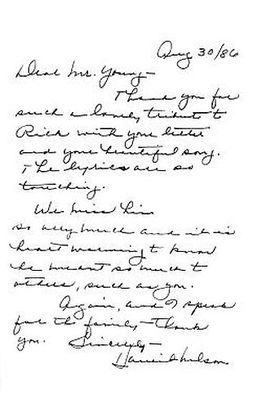 Aug 30/86
Dear Mr. Young—
Thank you for
such a lovely tribute to
Rick with your letter
and your beautiful song.
The lyrics are so
touching.
We miss him
so very much and it is
heart warming to know
he meant so much to
others, such as you.
Again, and I speak
for the family—thank
you. Sincerely—
Nelson